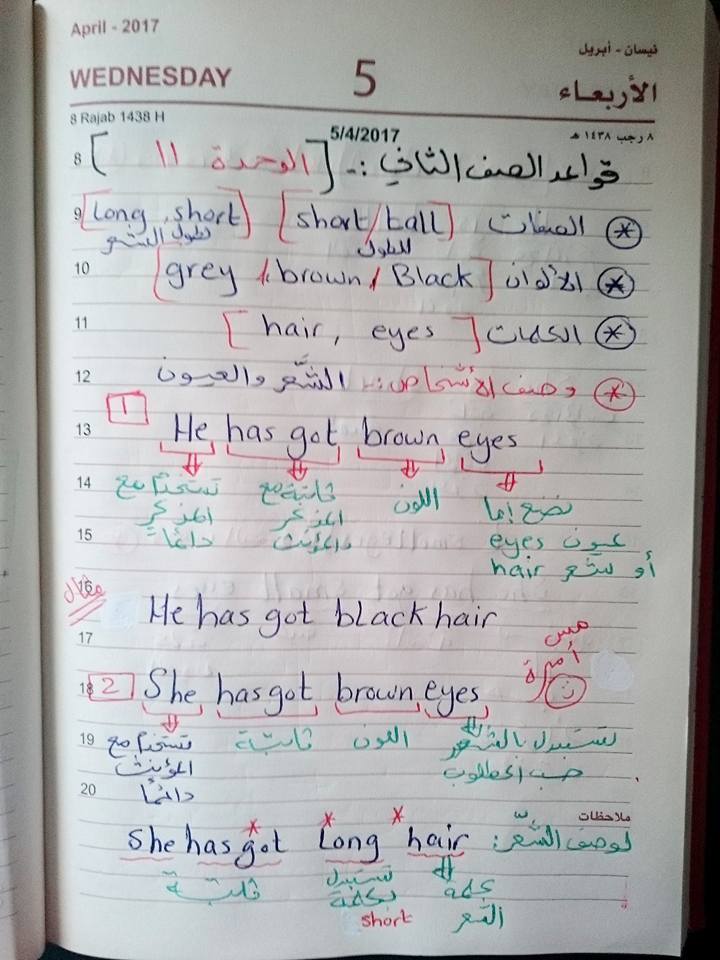 April - 2017
نيسان - أبريل
WEDNESDAY 5 الأربعاء
8 Rajab 1438 H
٨ رجب ١٤٣٨ هـ
5/4/2017
8
قواعد الصف الثاني :- [الوحدة 11]
9
* الصفات [short/tall] [Long, short]
للطول
لطول الشعر
10
* الألوان [grey / brown / Black]
11
* الكلمات [hair, eyes]
12
* وصف الأشخاص :- الشَّعر والعيون
1
13
He has got brown eyes
14
تستخدم مع المذكر دائمًا
ثابتة مع المذكر والمؤنث
اللون
نضع إما
15
عيون eyes
أو شعر hair
16
مثال
He has got black hair
17
ميس أميرة
18
2 She has got brown eyes
19
تستخدم مع المؤنث دائمًا
ثابتة
اللون
نستبدل بالشعر
حسب المطلوب
20
ملاحظات
لوصف الشَّعر: She has got Long hair
ثابتة
نستبدل بكلمة short
كلمة الشعر